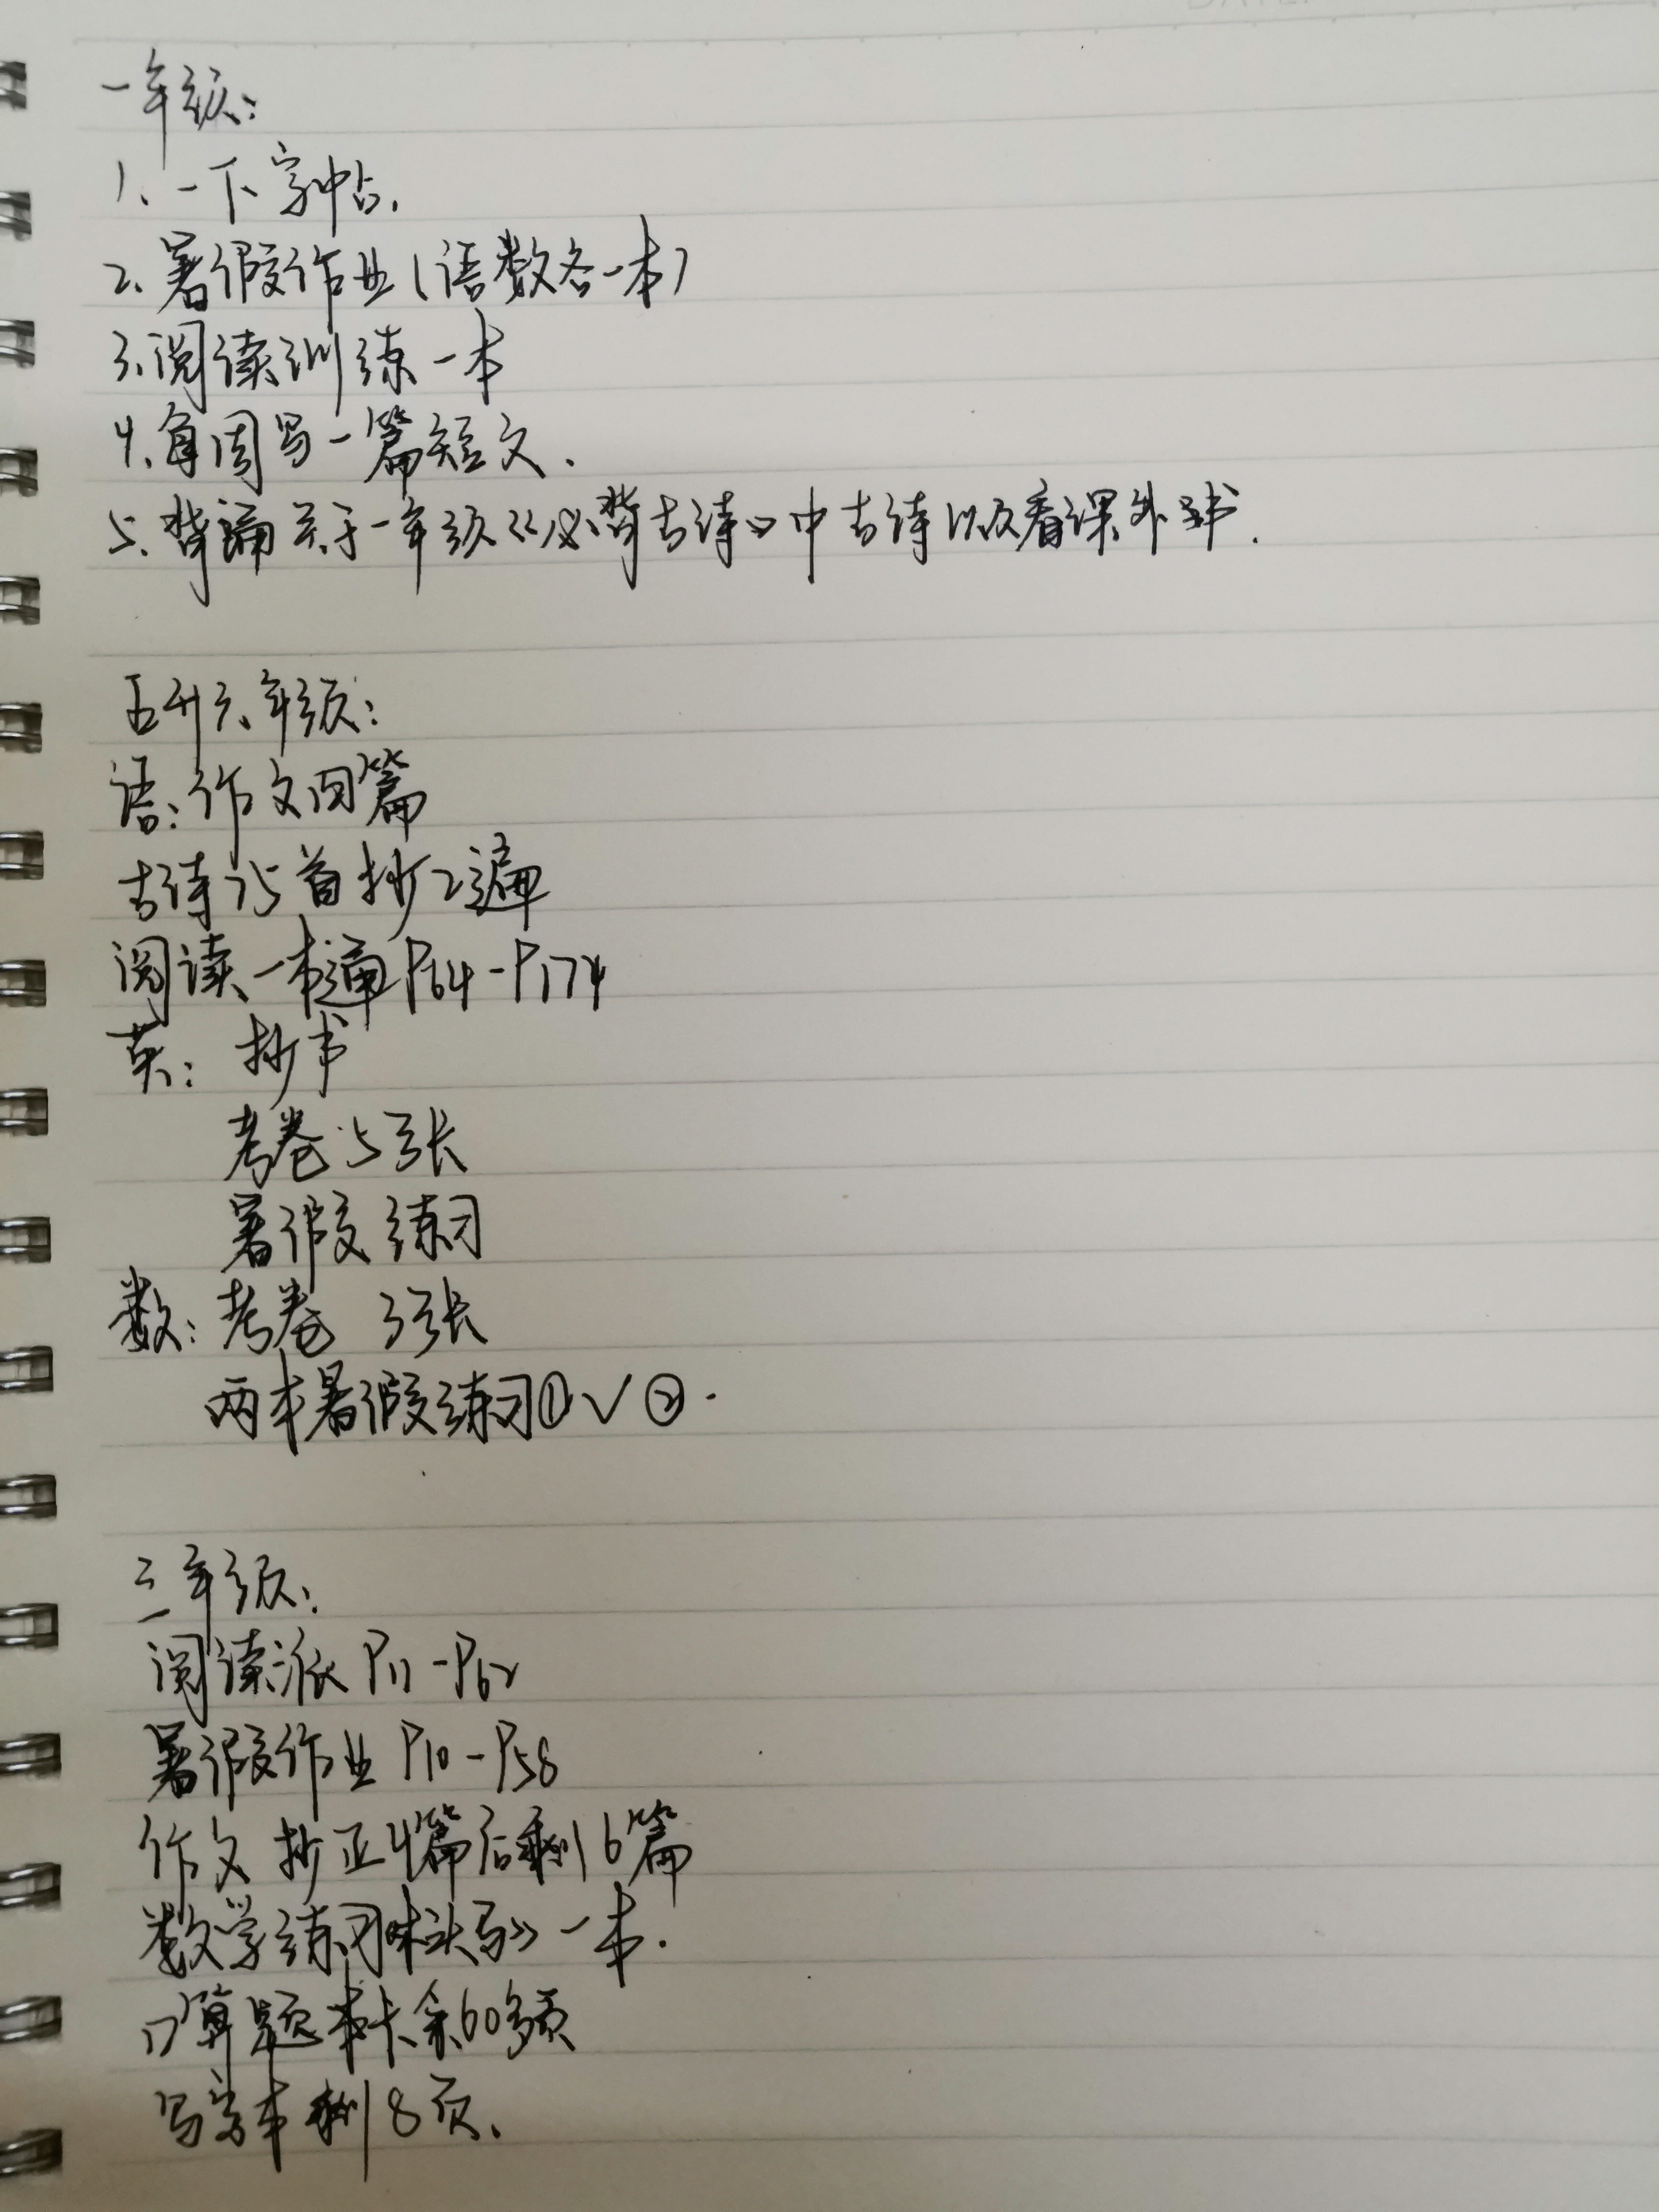 一年级:
1、一下字帖.
2、暑假作业(语数各一本)
3、阅读训练一本
4、每周写一篇短文.
5、背诵关于一年级《必背古诗》中古诗以及看课外书.
五升六年级:
语:作文四篇
古诗75首抄2遍
阅读一本通P64-P174
英: 抄书
考卷5张
暑假练习
数:考卷 3张
两本暑假练习①✓②.
三年级:
阅读派 P11-P62
暑假作业 P10-P58
作文 抄正4篇后剩6篇
数学练习 一本.
口算题 本卡余60多页
写字本剩8页.